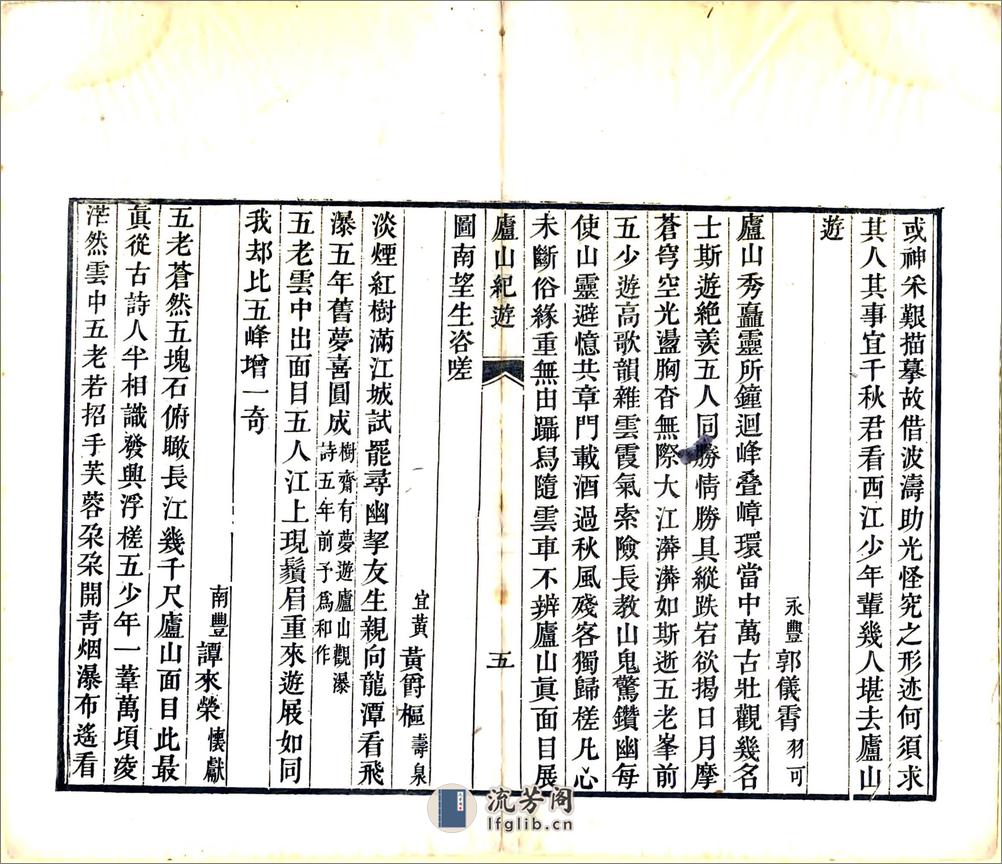 或神采艱描摹故借波濤助光怪究之形迹何須求
其人其事宜千秋君看西江少年輩幾人堪去廬山
遊
永豐郭儀霄羽可
廬山秀矗靈所鐘迴峰叠嶂環當中萬古壯觀幾名
士斯遊絶羡五人同勝情勝具縱跌宕欲揭日月摩
蒼穹空光盪胸杳無際大江漭漭如斯逝五老峯前
五少遊高歌韻雜雲霞氣索險長教山鬼驚鑽幽每
使山靈避憶共章門載酒過秋風殘客獨歸槎凡心
未斷俗緣重無由躡舄隨雲車不辨廬山眞面目展
廬山紀遊
五
圖南望生咨嗟
宜黃黃爵樞壽泉
淡煙紅樹滿江城試罷尋幽挈友生親向龍潭看飛
瀑五年舊夢喜圓成樹齋有夢遊廬山觀瀑
詩五年前予爲和作
五老雲中出面目五人江上現鬚眉重來遊展如同
我却比五峰增一奇
南豐譚來榮懷獻
五老蒼然五塊石俯瞰長江幾千尺廬山面目此最
眞從古詩人半相識發興浮槎五少年一葦萬頃凌
茫然雲中五老若招手芙蓉朶朶開青烟瀑布遙看
流芳阁
lfglib.cn